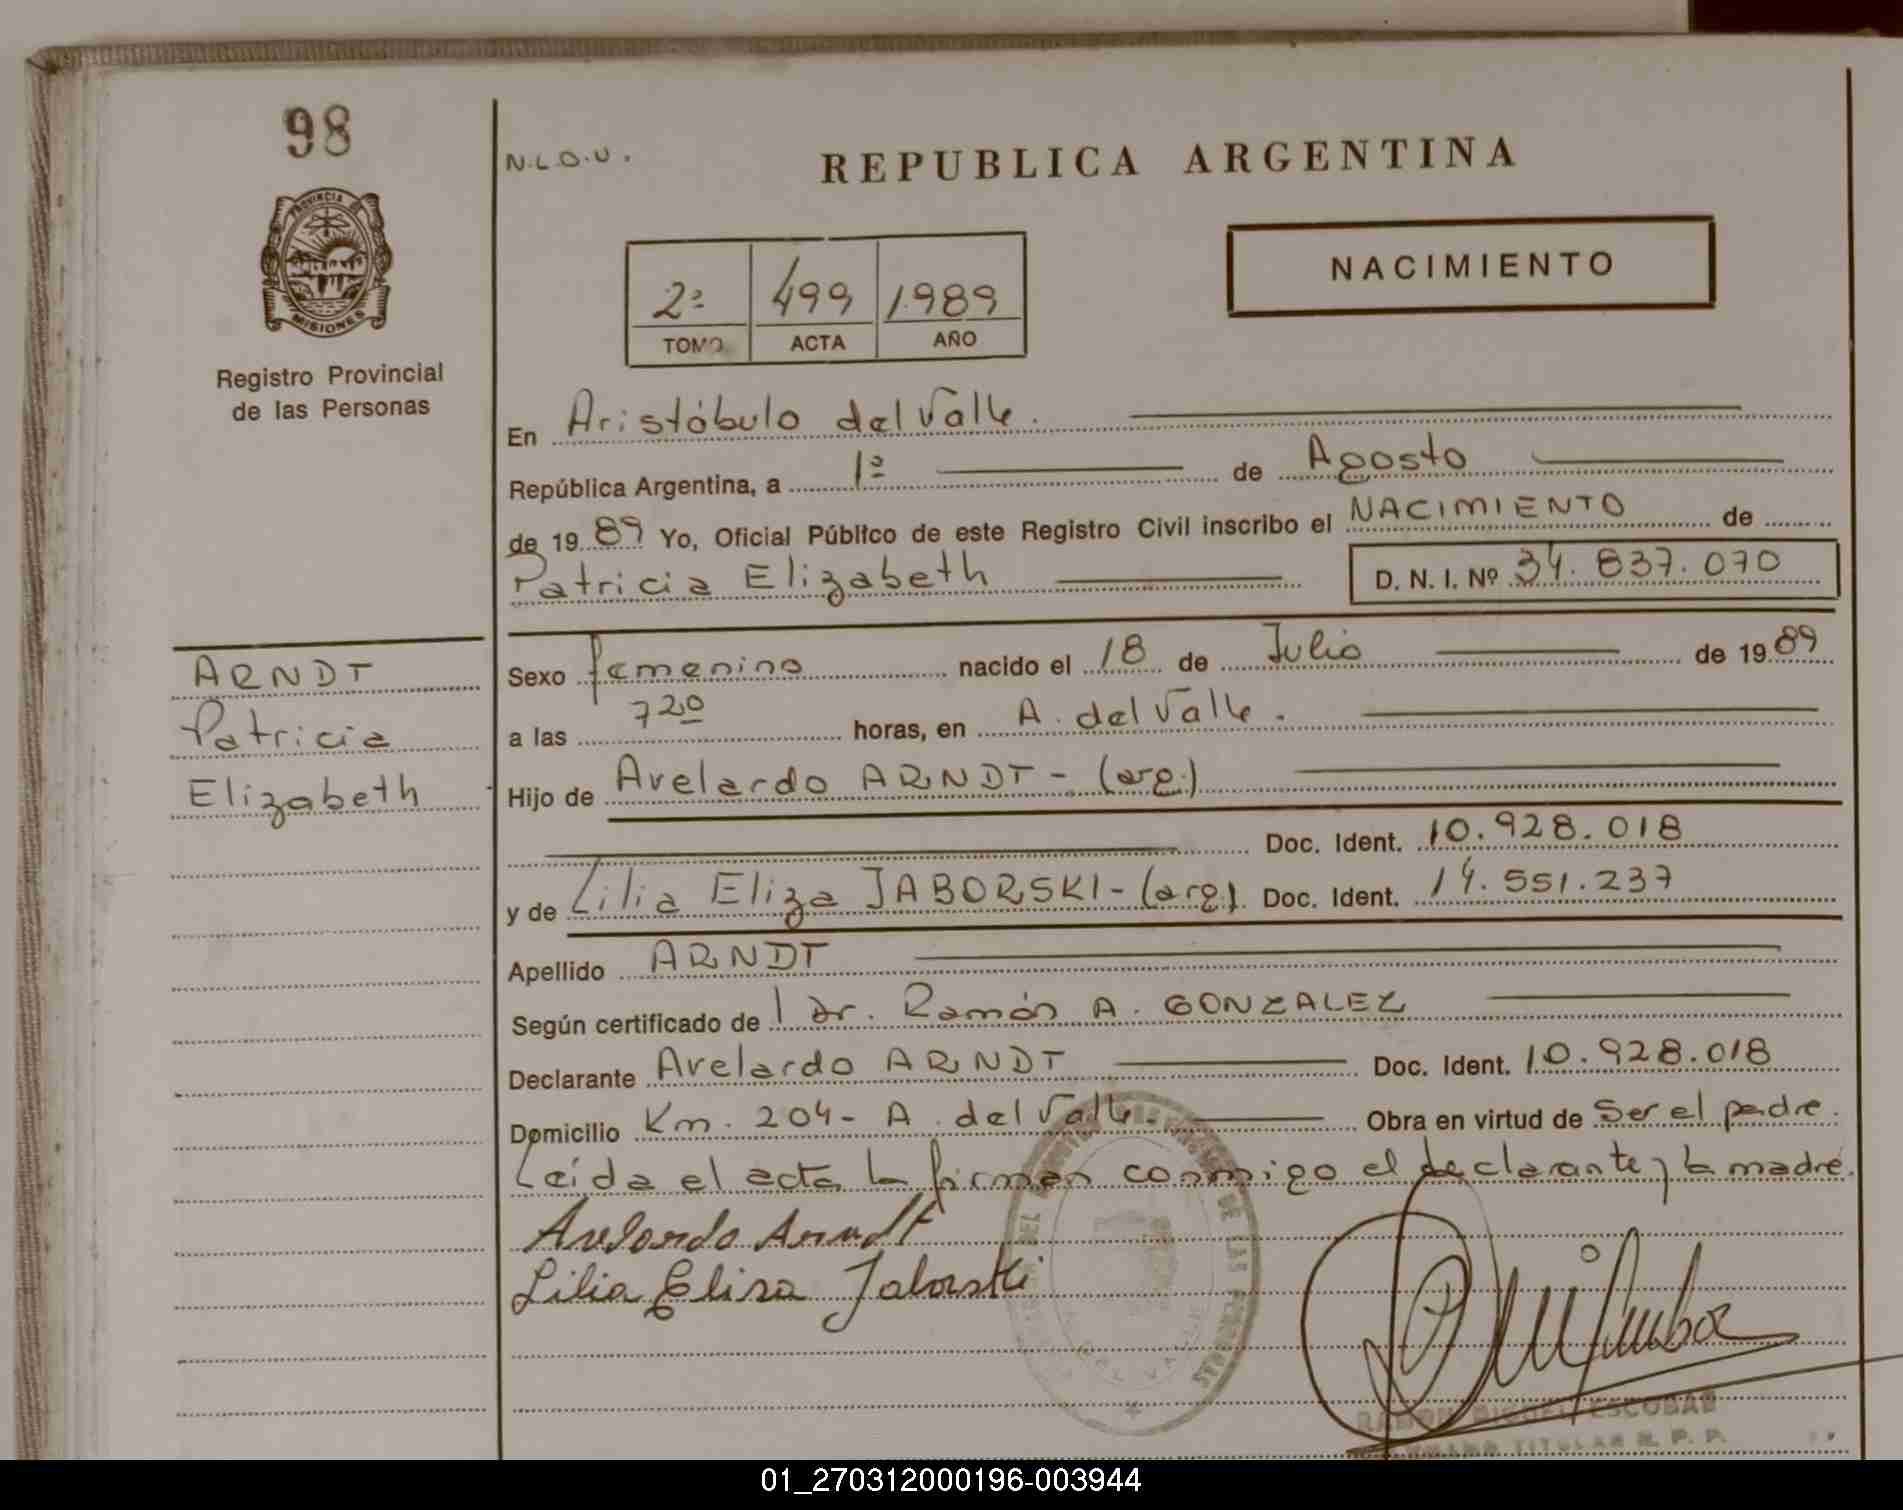 98
N.L.O.U.
REPUBLICA ARGENTINA
PROVINCIA DE
MISIONES
Registro Provincial
de las Personas
NACIMIENTO
2º 499 1989
TOMO ACTA AÑO
En Aristóbulo del Valle.
República Argentina, a 1º de Agosto
de 1989 Yo, Oficial Público de este Registro Civil inscribo el NACIMIENTO de
Patricia Elizabeth D. N. I. Nº 34.837.070
ARNDT
Patricia
Elizabeth
Sexo femenino nacido el 18 de Julio de 1989
a las 720 horas, en A. del Valle.
Hijo de Avelardo ARNDT - (arg.)
Doc. Ident. 10.928.018
y de Lilia Eliza JABORSKI - (arg) Doc. Ident. 14.551.237
Apellido ARNDT
Según certificado de l Dr. Ramón A. GONZALEZ
Declarante Avelardo ARNDT Doc. Ident. 10.928.018
Domicilio Km. 204 - A. del Valle. Obra en virtud de Ser el padre.
Leída el acta la firman conmigo el declarante y la madre.
Avelardo Arndt
Lilia Elisa Jaborski
DE LAS PERSONAS
DEL VALLE
RAMON MIGUEL ESCOBAR
TITULAR R. P. P.
01_270312000196-003944